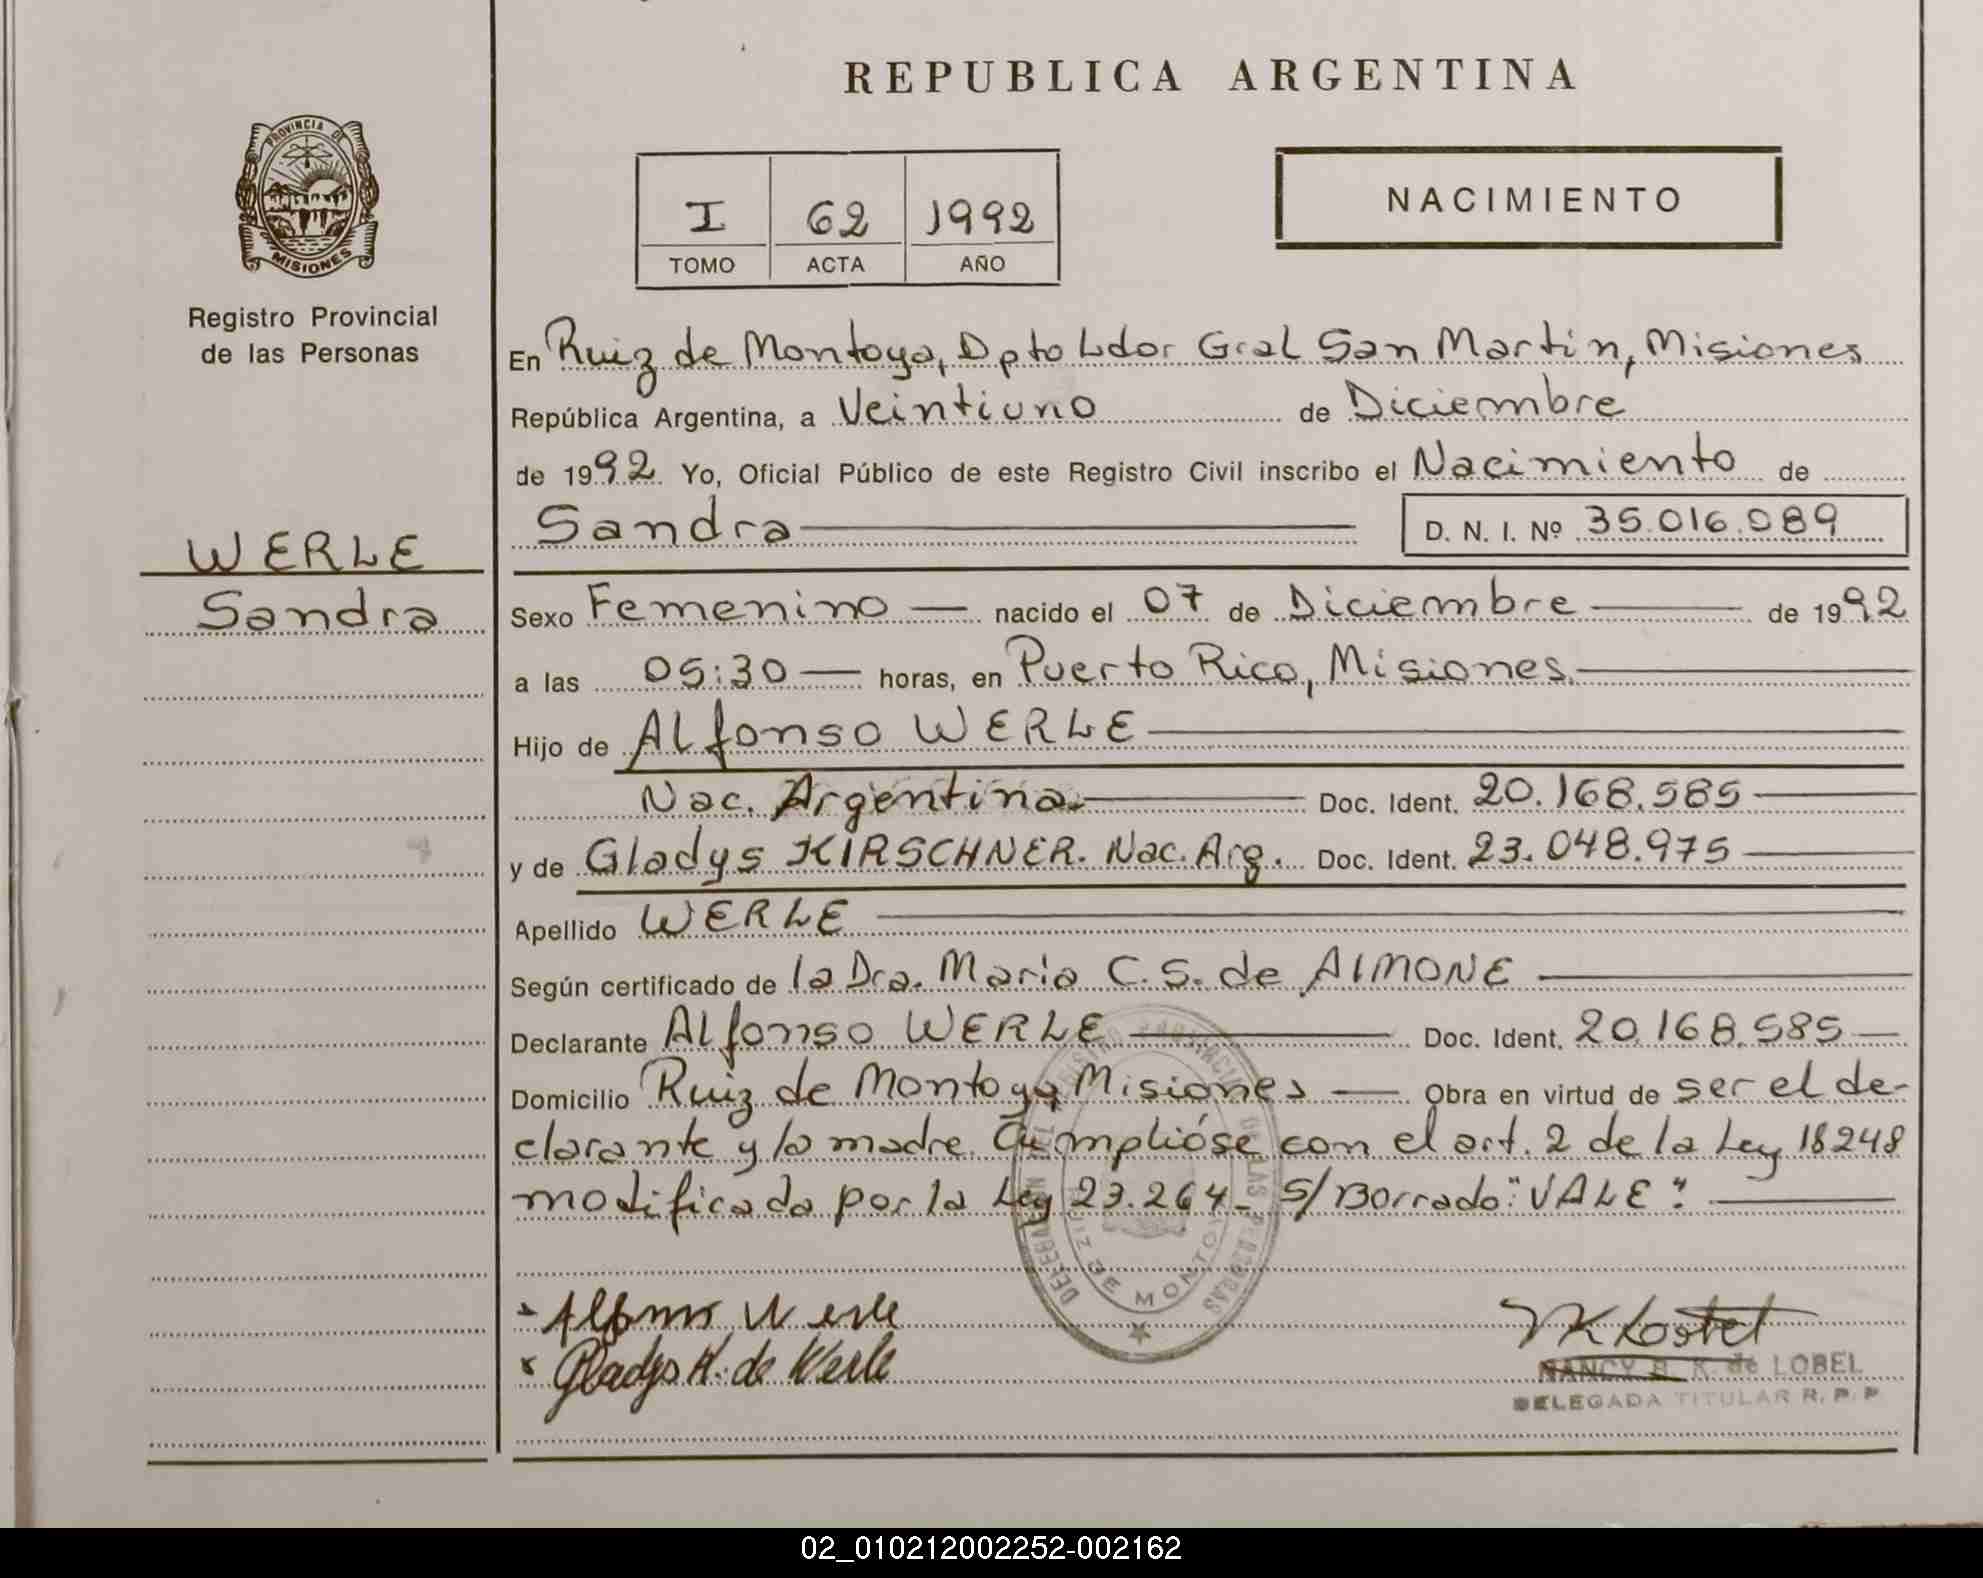 REPUBLICA ARGENTINA
PROVINCIA DE
MISIONES
Registro Provincial
de las Personas
I 62 1992
TOMO ACTA AÑO
NACIMIENTO
En Ruiz de Montoya, Dpto Ldor Gral San Martin, Misiones
República Argentina, a Veintiuno de Diciembre
de 1992 Yo, Oficial Público de este Registro Civil inscribo el Nacimiento de
Sandra D. N. I. Nº 35.016.089
WERLE
Sandra
Sexo Femenino nacido el 07 de Diciembre de 1992
a las 05:30 horas, en Puerto Rico, Misiones
Hijo de Alfonso WERLE
Nac. Argentina. Doc. Ident. 20.168.585
y de Gladys KIRSCHNER. Nac. Arg. Doc. Ident. 23.048.975
Apellido WERLE
Según certificado de la Dra. Maria C. S. de AIMONE
Declarante Alfonso WERLE Doc. Ident. 20.168.585
Domicilio Ruiz de Montoya Misiones Obra en virtud de ser el de-
clarante y la madre. Cumplióse con el art. 2 de la Ley 18248
modificada por la Ley 23.264- S/Borrado "VALE".
Alfonso Werle
Gladys K. de Werle
NANCY B. K. de LOBEL
DELEGADA TITULAR R. P. P
02_010212002252-002162